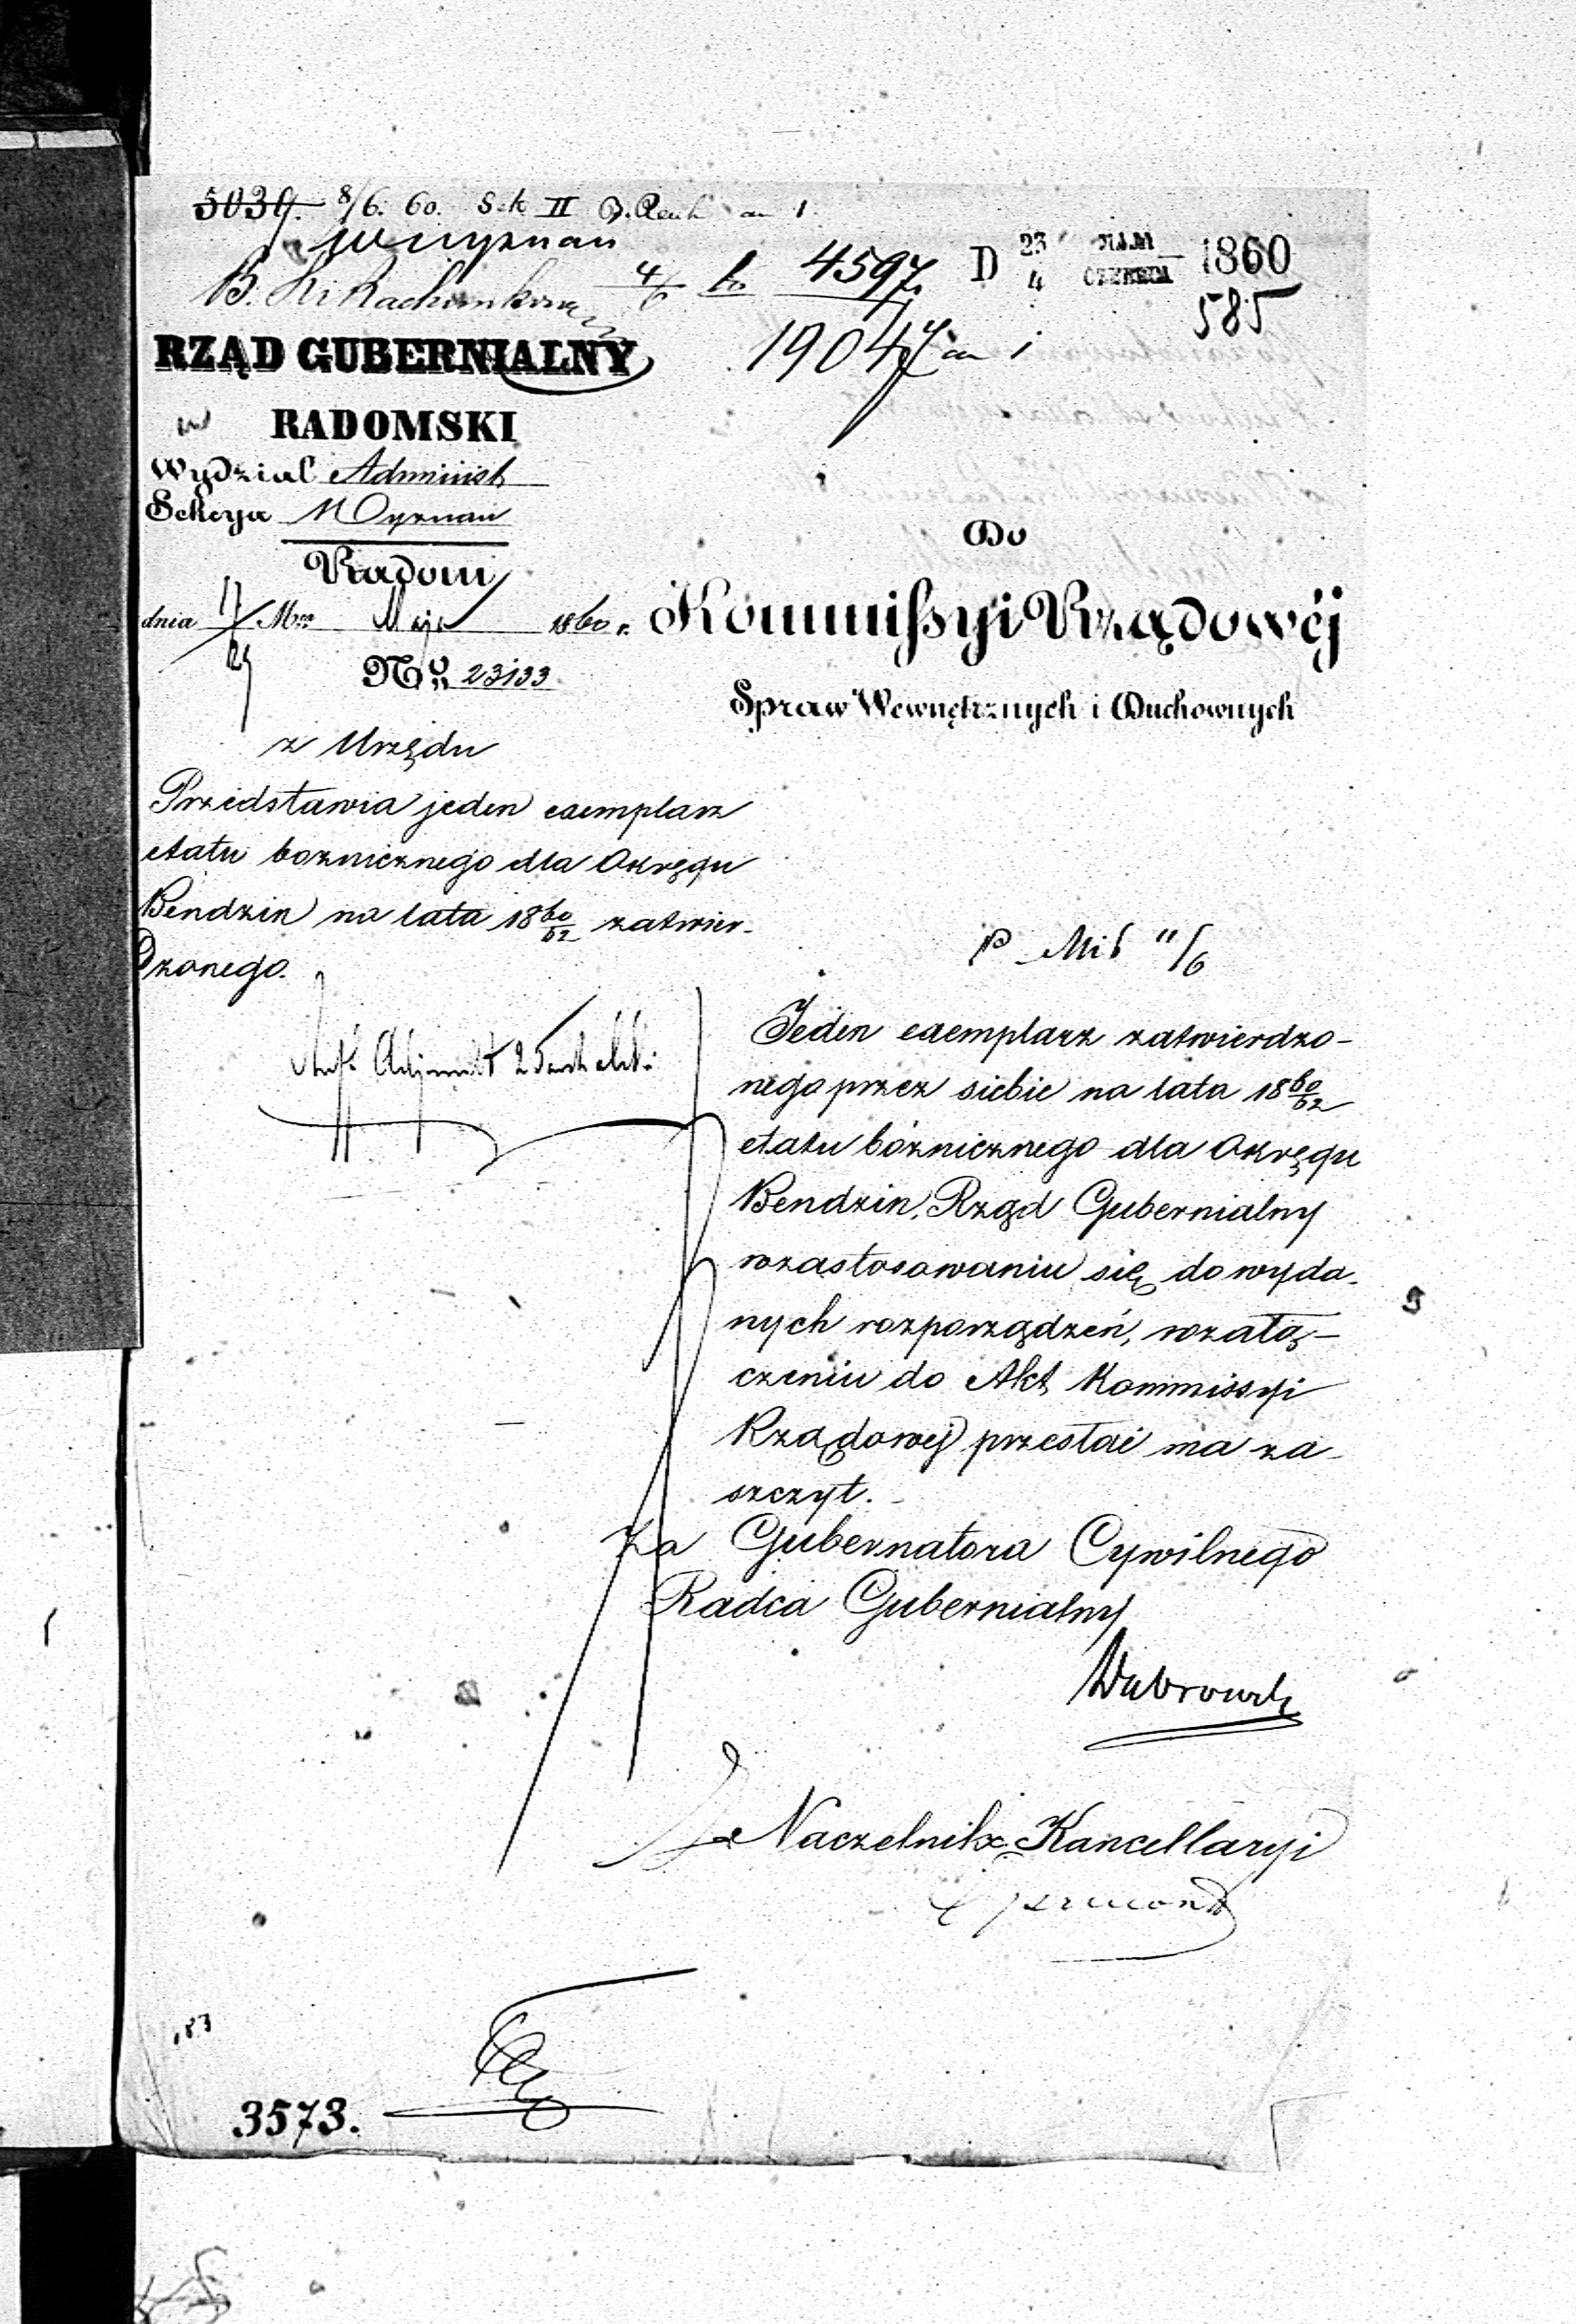 5039. 8/6. 60. S.k II
4/6 60 4597. D 23 MAJA / 4 CZERWCA 1860
585
19047
RZĄD GUBERNIALNY
RADOMSKI
Wydział Administ
Sekcya Wyznań
Radom
dnia 17/29 Mca Maja 1860 r.
No 23133
Do
Kommissyi Rządowéj
Spraw Wewnętrznych i Duchownych
z Urzędu
Przedstawia jeden exemplarz
etatu boznicznego dla Okręgu
Bendzin na lata 1860/62 zatwier-
dzonego.
11/6
Jeden exemplarz zatwierdzo-
nego przez siebie na lata 1860/62
etatu bóżnicznego dla Okręgu
Bendzin, Rząd Gubernialny
w zastosowaniu się do wyda-
nych rozporządzeń, w załą-
czeniu do Akt Kommissyi
Rządowej przesłać ma za-
szczyt.
Za Gubernatora Cywilnego
Radca Gubernialny
Naczelnik Kancellaryi
183
3573.